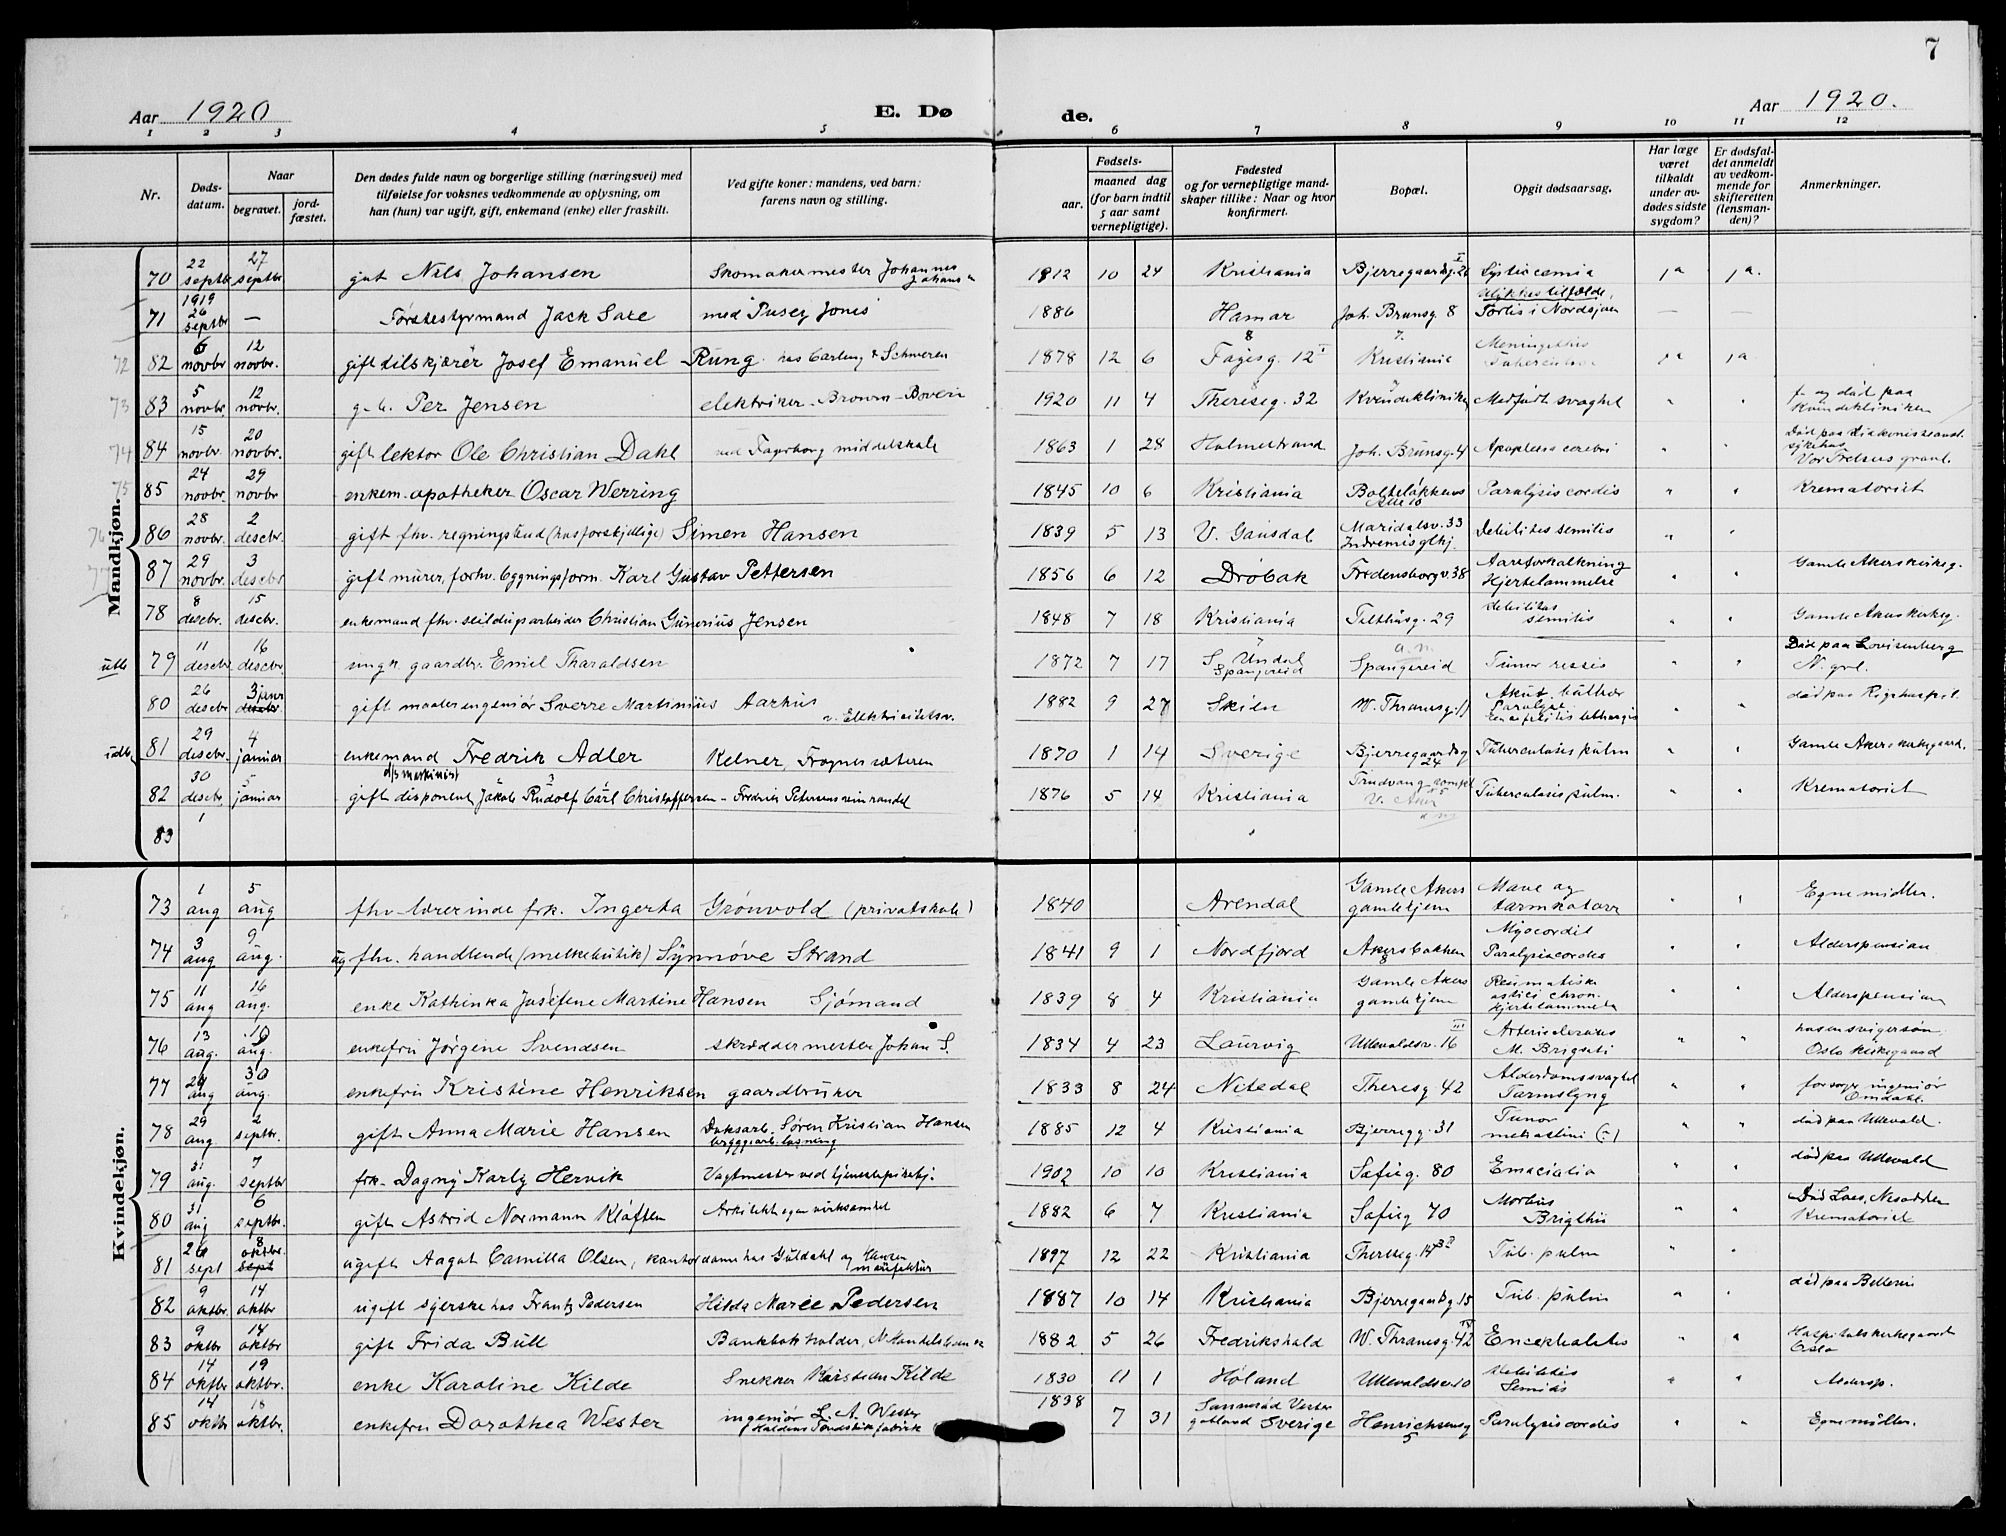 7
Aar 1920 E. Dø de. Aar 1920.
1 2 3 4 5 6 7 8 9 10 11 12
Nr. Døds-datum. Naar begravet. jord-fæstet. Den dødes fulde navn og borgerlige stilling (næringsvei) med tilføielse for voksnes vedkommende av oplysning, om han (hun) var ugift, gift, enkemand (enke) eller fraskilt. Ved gifte koner: mandens, ved barn: farens navn og stilling. Fødsels- aar. maaned dag (for barn indtil 5 aar samt vernepligtige). Fødested og for vernepligtige mand-skaper tillike: Naar og hvor konfirmert. Bopæl. Opgit dødsaarsag. Har læge været tilkaldt under av-dødes sidste sygdom? Er dødsfal-det anmeldt av vedkom-mende for skifteretten (lensman-den)? Anmerkninger.
Mandkjøn.
70 22 septbr 27 septbr gut Nils Johansen Skomakermester Johannes Johansen 1912 10 24 Kristiania Bjerregaardsg. 26 I ja ja.
71 1919 26 septbr — Førstestyrmand Jack Saxe med Pusey Jones 1886 Hamar Joh. Brunsg 8 Ulykkestilfælde, Forlis i Nordsjøen — —
72 82 6 novbr 12 novbr. gift tilskjærer Josef Emanuel Rung. hos Carling & Schweren 1878 12 6 Fagesg. 12 I Kristiania ja ja.
73 83 5 novbr. 12 novbr. Per Jensen elektriker Brown-Boveri 1920 11 4 Thereseg. 32 Kvindekliniken Medfødt svaghet " " f. og død paa Kvindekliniken
74 84 15 novbr. 20 novbr. gift lektor Ole Christian Dahl ved Fagerborg middelskole 1863 1 28 Holmestrand Joh. Brunsg. 4 Apoplexia cerebri " " Død paa Diakonisseanst. sykehus Vor Frelsers gravl.
75 85 24 novbr. 29 novbr enkem. apotheker Oscar Werring 1845 10 6 Kristiania Bolteløkkens Paralysis cordis " " Krematoriet
76 86 28 novbr. 2 desebr. gift fhv. regningsbud (hos forskjellige) Simen Hansen 1839 5 13 V. Gausdal Maridalsv. 33 Debilitas senilis " "
77 87 29 novbr. 3 desebr gift murer, forhv. bygningsform. Karl Gustav Pettersen 1856 6 12 Drøbak Fredensborgv. 38 Aareforkalkning Hjertelammelse " " Gamle Akers kirkeg.
78 8 desebr. 15 desebr. enkemand fhv. seildugsarbeider Christian Gunerius Jensen 1848 7 18 Kristiania Tulthusg. 29 debilitas senilis " " Gamle Akers kirkeg.
utb 79 11 desebr. 16 desebr. ungk. gaardbr. Emiel Tharaldsen 1872 7 17 S. Undal Spangereid Spangereid " " Død paa Lovisenberg N. grl.
80 26 desebr. 3 janr gift maaleringeniør Sverre Martinius Aarhus v. Elektricitetsv. 1882 9 27 Skien W. Thranesg. 11 Akut Paralyse Encefalitis lethargis " " død paa Rigshospit.
udb. 81 29 desebr. 4 januar enkemand Fredrik Adler Kelner, Frognersæteren 1870 1 14 Sverige Bjerregaardsg 24 Tuberculosis pulm " " Gamle Akers kirkegaard.
82 30 desebr 5 januar d/s maskinist gift disponent Jakob Rudolf Carl Christoffersen - Fredrik Petersens vinhandel 1876 5 14 Kristiania Trudvang V. Aker Tuberculosis pulm. " " Krematoriet
83 1
Kvindekjøn.
73 1 aug 5 aug fhv. lærerinde frk. Ingerta Grønvold (privatskole) 1840 Arendal Gamle Akers gamlehjem Mave og tarmkatarr " " Egne midler.
74 3 aug 9 aug. ug fhv. handlende (melkebutik) Synnøve Strand 1841 9 1 Nordfjord Akersbakken Myocordit Paralysiscordis " " Alderspension
75 11 aug 16 aug. enke Kathinka Josefene Martine Hansen Sjømand 1839 8 4 Kristiania Gamle Akers gamlehjem Reumatiske chron. Hjertelammelse " " Alderspension
76 13 aug. 19 aug. enkefru Jørgine Svendsen skræddermester Johan S. 1834 4 23 Laurvig Ullevaldsv. 16 III M. Brigsti " " hos svigersøn Oslo kirkegaard
77 24 aug 30 aug. enkefru Kristine Henriksen gaardbruker 1833 8 24 Nitedal Theresg. 42 Alderdomssvaghet Tarmslyng " " forsørges ingeniør Omdahl.
78 29 aug. 2 septbr. gift Anna Marie Hansen Doksarb. Søren Kristian Hansen bryggearb. losning 1885 12 4 Kristiania Bjerregg. 31 Tumor " " død paa Ullevald.
79 31 aug. 7 septbr frk. Dagny Karly Hervik Vagtmester ved tjenestepikehj. 1902 10 10 Kristiania Sofieg. 80 Emaciatio " " død paa Ullevald
80 31 aug 6 septbr. gift Astrid Normann Kløften Arkitekt egen virksomhet 1882 6 7 Kristiania Sofieg 70 Morbus Brigthii " " Død Nesodden Krematoriet
81 26 sept 8 oktbr. sept ugift Aagot Camilla Olsen, kontordame hos Guldahl og Hansen manufaktur 1897 12 22 Kristiania Thereseg. 14 Tub. pulm " "
82 9 oktbr. 14 oktbr ugift syerske hos Frantz Pedersen Hilda Marie Pedersen 1887 10 14 Kristiania Bjerregaardsg. 15 Tub. pulm " " død paa Bellevue
83 9 oktbr 14 oktbr gift Frida Bull Bankbokholder, N. Handelsbank 1882 5 26 Fredrikshald W. Thranesg. 42 IV Encephalitis " " Hospitalskirkegaard Oslo
84 14 oktbr 19 oktbr. enke Karoline Kilde Snekker Kristian Kilde 1830 11 1 Høland Ullevaldsv. 10 Debilitas Senilis " " Aldersp.
85 14 oktbr 18 oktbr. enkefru Dorothea Wester ingeniør L. A. Wester Haldens Tændstikfabrik 1838 7 31 Vester gøtland Sverige Henrichsensg 5 Paralysis cordis " " Egne midler.